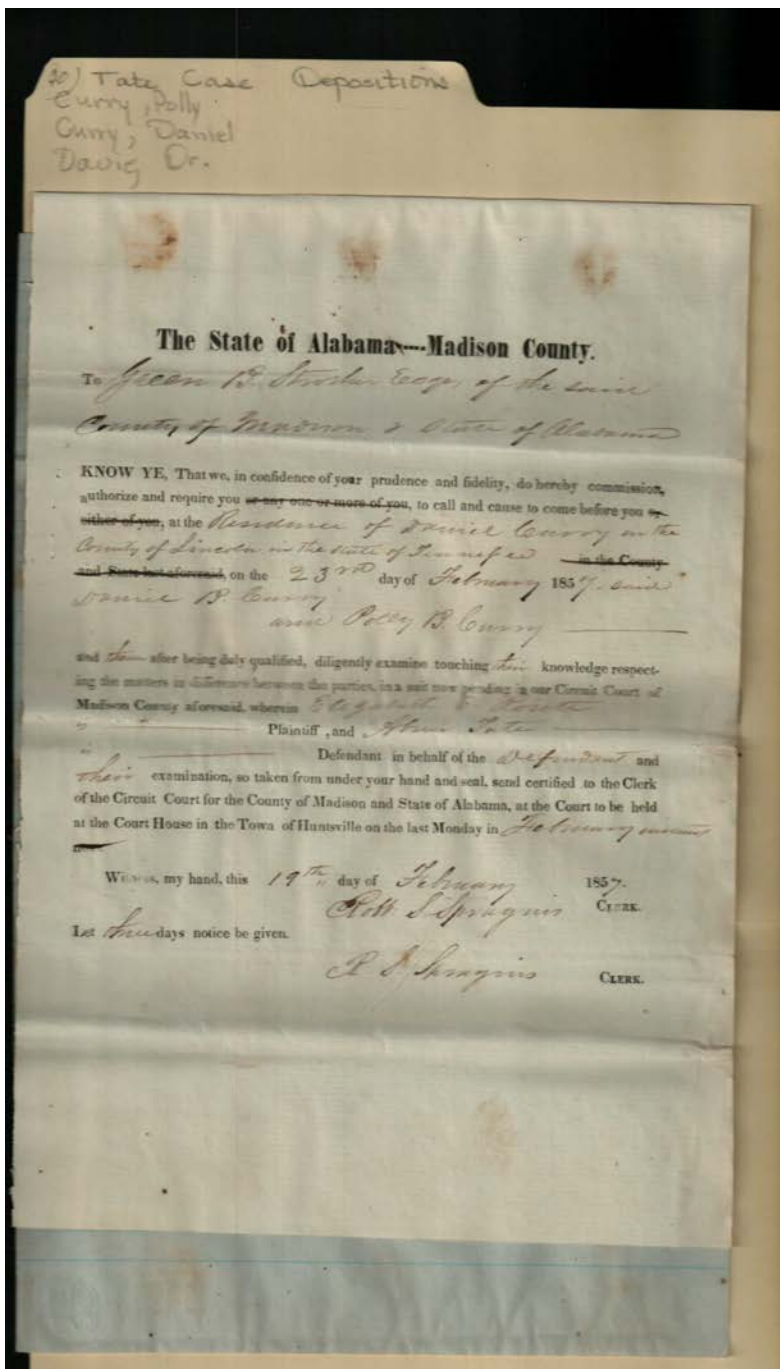 20) Tate Case Depositions
Curry, Polly
Curry, Daniel
Davis, Dr.
The State of Alabama----Madison County.
To Green B. Strother Esqr, of the same
County of Madison & State of Alabama
KNOW YE, That we, in confidence of your prudence and fidelity, do hereby commission,
authorize and require you or any one or more of you, to call and cause to come before you or
either of you, at the Residence of Daniel Curry in the
County of Lincoln in the state of Tennessee in the County
and State last aforesaid, on the 23rd day of February 1857. said
Daniel B. Curry
and Polly B. Curry
and them after being duly qualified, diligently examine touching their knowledge respect-
ing the matters in difference between the parties, in a suit now pending in our Circuit Court of
Madison County aforesaid, wherein Elizabeth E Routt
Plaintiff, and Abner Tate
Defendant in behalf of the Defendant and
their examination, so taken from under your hand and seal, send certified to the Clerk
of the Circuit Court for the County of Madison and State of Alabama, at the Court to be held
at the Court House in the Town of Huntsville on the last Monday in February
Witness, my hand, this 19th day of February 1857.
Robt. S Spragins CLERK.
Let three days notice be given.
R S Spragins CLERK.